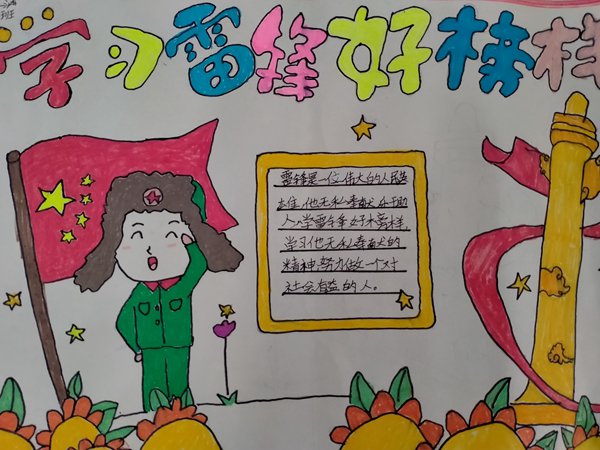 班
学习雷锋好榜样
雷锋是一位伟大的人民英
雄他无私奉献乐于助
人学雷锋好榜样
学习他无私奉献的
精神努力做一个对
社会有益的人。